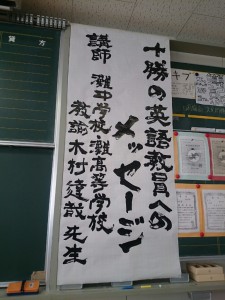 十勝の英語教員への
メッセージ
講師 灘中学校灘高等学校
教諭 木村達哉 先生
貸方